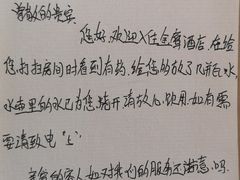 尊敬的贵宾
您好,欢迎入住金鹰酒店,在给
您打扫房间时看到有药,给您的放了几瓶水,
水壶里的水已为您烧开请放心饮用如有需
要请致电“5”
的客人如对我们的服务还满意吗